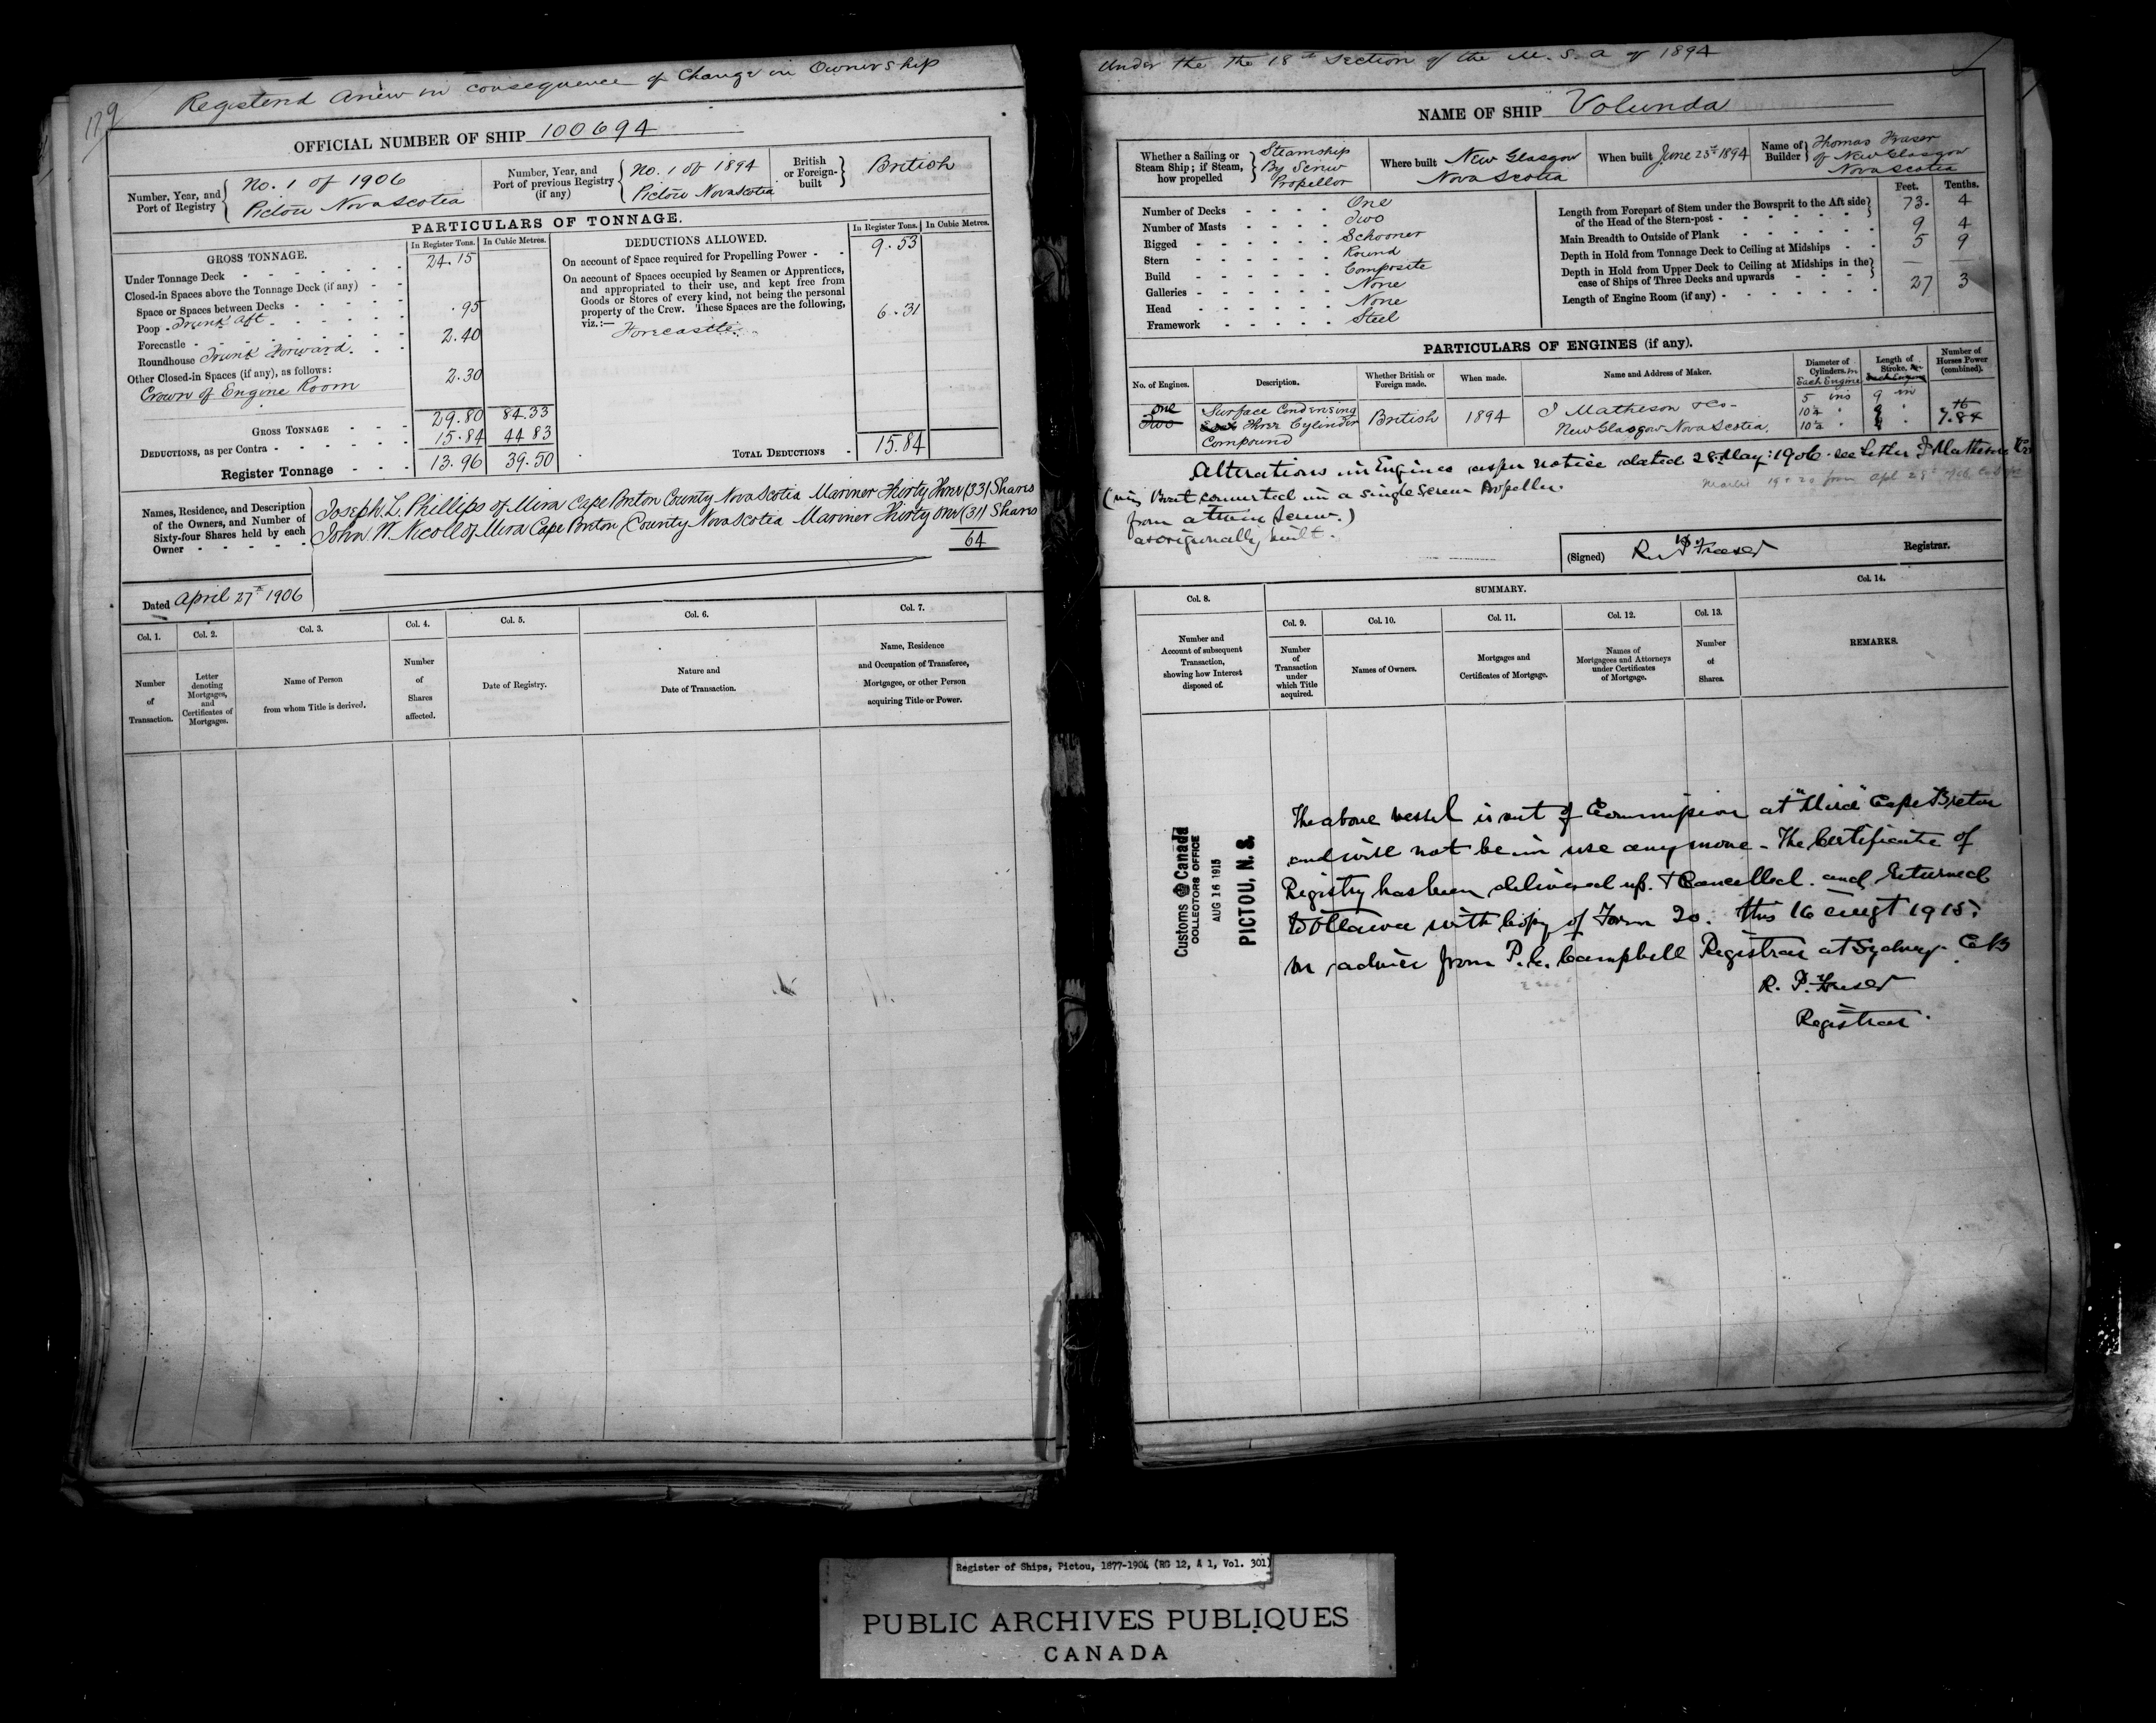 179
Registered Anew in consequence of Change in Ownership
OFFICIAL NUMBER OF SHIP 100694
Number, Year, and Port of Registry { No. 1 of 1906 Pictou Nova Scotia
Number, Year, and Port of previous Registry (if any) { No. 1 of 1894 Pictou Nova Scotia
British or Foreign-built } British
PARTICULARS OF TONNAGE.
GROSS TONNAGE. In Register Tons. In Cubic Metres.
Under Tonnage Deck 24.15
Closed-in Spaces above the Tonnage Deck (if any)
Space or Spaces between Decks
Poop Trunk Aft .95
Forecastle
Roundhouse Trunk Forward 2.40
Other Closed-in Spaces (if any), as follows:
Crown of Engine Room 2.30
GROSS TONNAGE 29.80 84.33
DEDUCTIONS, as per Contra 15.84 44 83
Register Tonnage 13.96 39.50
DEDUCTIONS ALLOWED. In Register Tons. In Cubic Metres.
On account of Space required for Propelling Power 9.53
On account of Spaces occupied by Seamen or Apprentices,
and appropriated to their use, and kept free from
Goods or Stores of every kind, not being the personal
property of the Crew. These Spaces are the following,
viz.:— 6.31
Forecastle
TOTAL DEDUCTIONS 15.84
Names, Residence, and Description
of the Owners, and Number of
Sixty-four Shares held by each
Owner
Joseph. L. Phillips of Mira Cape Breton County Nova Scotia Mariner Thirty Three (33) Shares
John. W. Nicoll of Mira Cape Breton County Nova Scotia Mariner Thirty One (31) Shares
64
Dated April 27th 1906
Col. 1. Col. 2. Col. 3. Col. 4. Col. 5. Col. 6. Col. 7.
Number of Transaction.
Letter denoting Mortgages, and Certificates of Mortgages.
Name of Person from whom Title is derived.
Number of Shares affected.
Date of Registry.
Nature and Date of Transaction.
Name, Residence and Occupation of Transferee, Mortgagee, or other Person acquiring Title or Power.
Under the The 18th Section of the M. S. A of 1894
NAME OF SHIP Volunda
Whether a Sailing or Steam Ship; if Steam, how propelled } Steamship By Screw Propellor
Where built New Glasgow Nova Scotia
When built June 25th 1894
Name of Builder } Thomas Fraser of New Glasgow Nova Scotia
Number of Decks One
Number of Masts Two
Rigged Schooner
Stern Round
Build Composite
Galleries None
Head None
Framework Steel
Feet. Tenths.
Length from Forepart of Stem under the Bowsprit to the Aft side of the Head of the Stern-post 73. 4
Main Breadth to Outside of Plank 9 4
Depth in Hold from Tonnage Deck to Ceiling at Midships 5 9
Depth in Hold from Upper Deck to Ceiling at Midships in the case of Ships of Three Decks and upwards — —
Length of Engine Room (if any) 27 3
PARTICULARS OF ENGINES (if any).
No. of Engines. Description. Whether British or Foreign made. When made. Name and Address of Maker. Diameter of Cylinders. in Each Engine Length of Stroke. Number of Horses Power (combined).
One Two
Surface Condensing Three Cylinder Compound
British 1894
I Matheson & Co New Glasgow Nova Scotia.
5 ins 9 in
10¼ "
10¼ "
7.84
Alterations in Engines as per notice dated 28 May: 1906. see Letter I Matheson & Co
(viz Boat converted in a single Screw Propeller.
from a twin Screw.)
as origionally built.
(Signed) R. P. Fraser Registrar.
Col. 8. SUMMARY. Col. 14.
Col. 9. Col. 10. Col. 11. Col. 12. Col. 13.
Number and Account of subsequent Transaction, showing how Interest disposed of.
Number of Transaction under which Title acquired.
Names of Owners.
Mortgages and Certificates of Mortgage.
Names of Mortgagees and Attorneys under Certificates of Mortgage.
Number of Shares.
REMARKS.
Customs Canada
COLLECTORS OFFICE
AUG 16 1915
PICTOU, N. S.
The above vessel is out of Commission at "Mira" Cape Breton
and will not be in use any more - The Certificate of
Registry has been delivered up. & Cancelled. and Returned
to Ottawa with Copy of Form 20. this 16 Augt 1915.
on advice from P. C. Campbell Registrar at Sydney C B
R. P. Fraser
Registrar
Register of Ships, Pictou, 1877-1904 (RG 12, A 1, Vol. 301)
PUBLIC ARCHIVES PUBLIQUES
CANADA